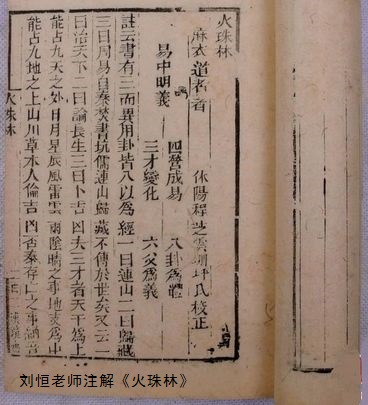 火珠林
麻衣道者著 休陽程芝雲
氏校正
四營成易 八卦為體
易中明義
三才變化 六爻為義
註云書有三而異用卦皆八以為經一曰連山二曰歸藏
三曰周易自秦焚書坑儒連山歸藏不傳於世矣又云一
曰治天下二曰論長生三曰卜吉凶夫三才者天為上
能占九天之外日月星辰風雷雲雨陰晴之事地支為中
能占九地之上山川草木人倫吉凶否泰存亡之事納音
火珠林
刘恒老师注解《火珠林》